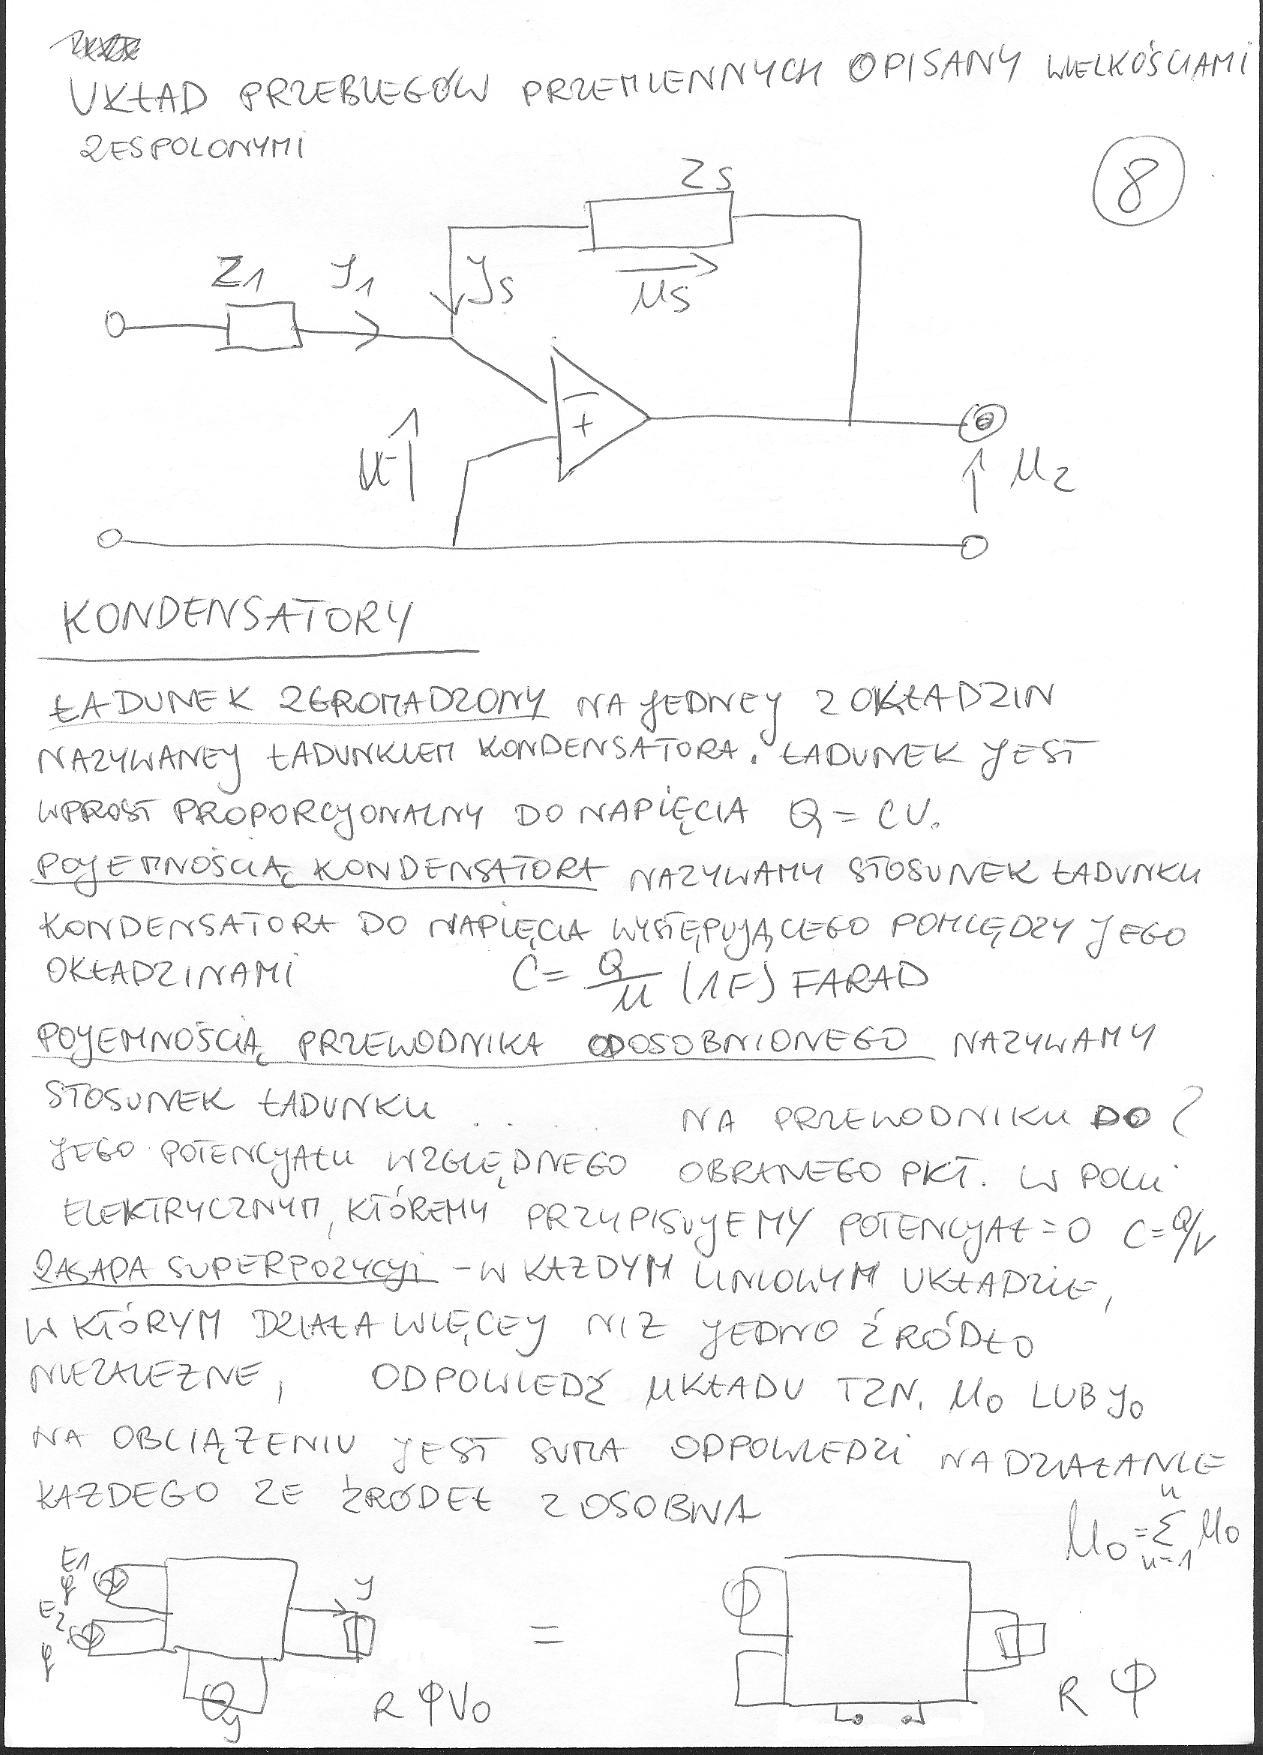 UKŁAD PRZEBIEGÓW PRZEMIENNYCH OPISANY WIELKOŚCIAMI
ZESPOLONYMI
8
ZS
Z1 J1 JS
US
U1
U2
- +
KONDENSATORY
ŁADUNEK ZGROMADZONY NA JEDNEJ Z OKŁADZIN
NAZYWANEJ ŁADUNKIEM KONDENSATORA. ŁADUNEK JEST
WPROST PROPORCJONALNY DO NAPIĘCIA Q = CU.
POJEMNOŚCIĄ KONDENSATORA NAZYWAMY STOSUNEK ŁADUNKU
KONDENSATORA DO NAPIĘCIA WYSTĘPUJĄCEGO POMIĘDZY JEGO
OKŁADZINAMI C = Q/U (1F) FARAD
POJEMNOŚCIĄ PRZEWODNIKA ODOSOBNIONEGO NAZYWAMY
STOSUNEK ŁADUNKU . . . . . NA PRZEWODNIKU DO ?
JEGO POTENCJAŁU WZGLĘDNEGO OBRANEGO PKT. W POLU
ELEKTRYCZNYM, KTÓREMU PRZYPISUJEMY POTENCJAŁ = 0 C = Q/V
ZASADA SUPERPOZYCJI - W KAŻDYM LINIOWYM UKŁADZIE,
W KTÓRYM DZIAŁA WIĘCEJ NIŻ JEDNO ŹRÓDŁO
NIEZALEŻNE, ODPOWIEDŹ UKŁADU TZN. U0 LUB J0
NA OBCIĄŻENIU JEST SUMA ODPOWIEDZI NA DZIAŁANIE
KAŻDEGO ZE ŹRÓDEŁ Z OSOBNA
U0 = n Σ n=1 U0
E1 J
E2
= 
J R φ V0 R φ